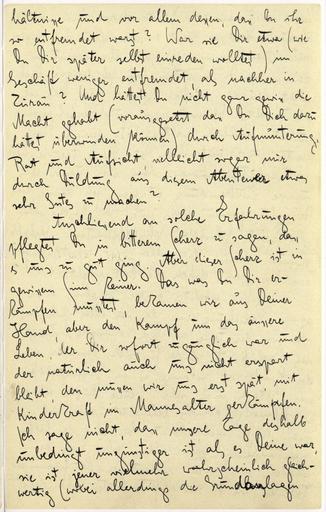 hältnisse und vor allem dessen, daß Du ihr
so entfremdet warst? War sie Dir etwa (wie
Du Dir später selbst einreden wolltest) im
Geschäft weniger entfremdet, als nachher in
Zürau? Und hättest Du nicht ganz gewiss die
Macht gehabt (vorausgesetzt dass Du Dich dazu
hättest überwinden können) durch Aufmunterung,
Rat und Aufsicht, vielleicht sogar nur
durch Duldung aus diesem Abenteuer etwas
sehr Gutes zu machen?
Anschliessend an solche Erfahrungen
pflegtest Du in bitterem Scherz zu sagen, dass
es uns zu gut ging. Aber dieser Scherz ist in
gewissem Sinn keiner. Das was Du Dir er-
kämpfen musstest, bekamen wir aus Deiner
Hand, aber den Kampf um das äussere
Leben, der Dir sofort zugänglich war und
der natürlich auch uns nicht erspart
bleibt, den müssen wir uns erst spät, mit
Kinderkraft im Mannesalter erkämpfen.
Ich sage nicht, dass unsere Lage deshalb
unbedingt ungünstiger ist als es Deine war,
sie ist jener vielmehr wahrscheinlich gleich-
wertig (wobei allerdings die Grundanlagen